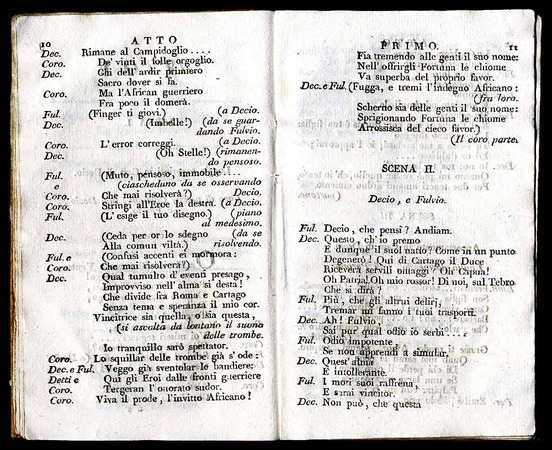 10 ATTO
Dec. Rimane al Campidoglio ....
Coro. De' vinti il folle orgoglio.
Dec. Chi dell'ardir primiero
Sacro dover si fa.
Coro. Ma l'African guerriero
Fra poco il domerà.
Ful. (Finger ti giovi.) (a Decio.
Dec. (Imbelle!) (da se guar-
dando Fulvio.
Coro. L'error correggi. (a Decio.
Dec. (Oh Stelle!) (rimanen-
do pensoso.
Ful. (Muto, pensoso, immobile ....
e (ciascheduno da se osservando
Coro. Che mai risolverà?) Decio.
Coro. Stringi all'Eroe la destra. (a Decio.
Ful. (L'esige il tuo disegno.) (piano
al medesimo.
Dec. (Ceda per or lo sdegno (da se
Alla comun viltà.) risolvendo.
Ful. e (Confusi accenti ei mormora:
Coro. Che mai risolverà?)
Dec. Qual tumulto d'eventi presago,
Improvviso nell'alma si desta!
Che divide fra Roma e Cartago
Senza tema e speranza il mio cor.
Vincitrice sia quella, o sia questa,
(si ascolta da lontano il suono
delle trombe.
Io tranquillo sarò spettator.
Coro. Lo squillar delle trombe già s'ode:
Dec. e Ful. Veggo già sventolar le bandiere:
Detti e Qui gli Eroi dalle fronti guerriere
Coro. Tergeran l'onorato sudor.
Coro. Viva il prode, l'invitto Africano!
PRIMO. 11
Fia tremendo alle genti il suo nome:
Nell'offrirgli Fortuna le chiome
Va superba del proprio favor.
Dec. e Ful. (Fugga, e tremi l'indegno Africano:
(fra loro.
Scherno sia delle genti il suo nome:
Sprigionando Fortuna le chiome
Arrossisca del cieco favor.)
(Il coro parte.
SCENA II.
Decio, e Fulvio.
Ful. Decio, che pensi? Andiam.
Dec. Questo, ch'io premo
E dunque il suol natio? Come in un punto
Degenerò! Qui di Cartago il Duce
Riceverà servili omaggi? Oh Capua!
Oh Patria! Oh mio rossor! Di noi, sul Tebro
Che si dirà?
Ful. Più, che gli altrui deliri,
Tremar mi fanno i tuoi trasporti.
Dec. Ah! Fulvio,
Sai pur qual odio io serbo ...
Ful. Odio impotente
Se non apprendi a simular.
Dec. Quest'alma
E intollerante.
Ful. I moti suoi raffrena,
E sarai vincitor.
Dec. Non può, che questa